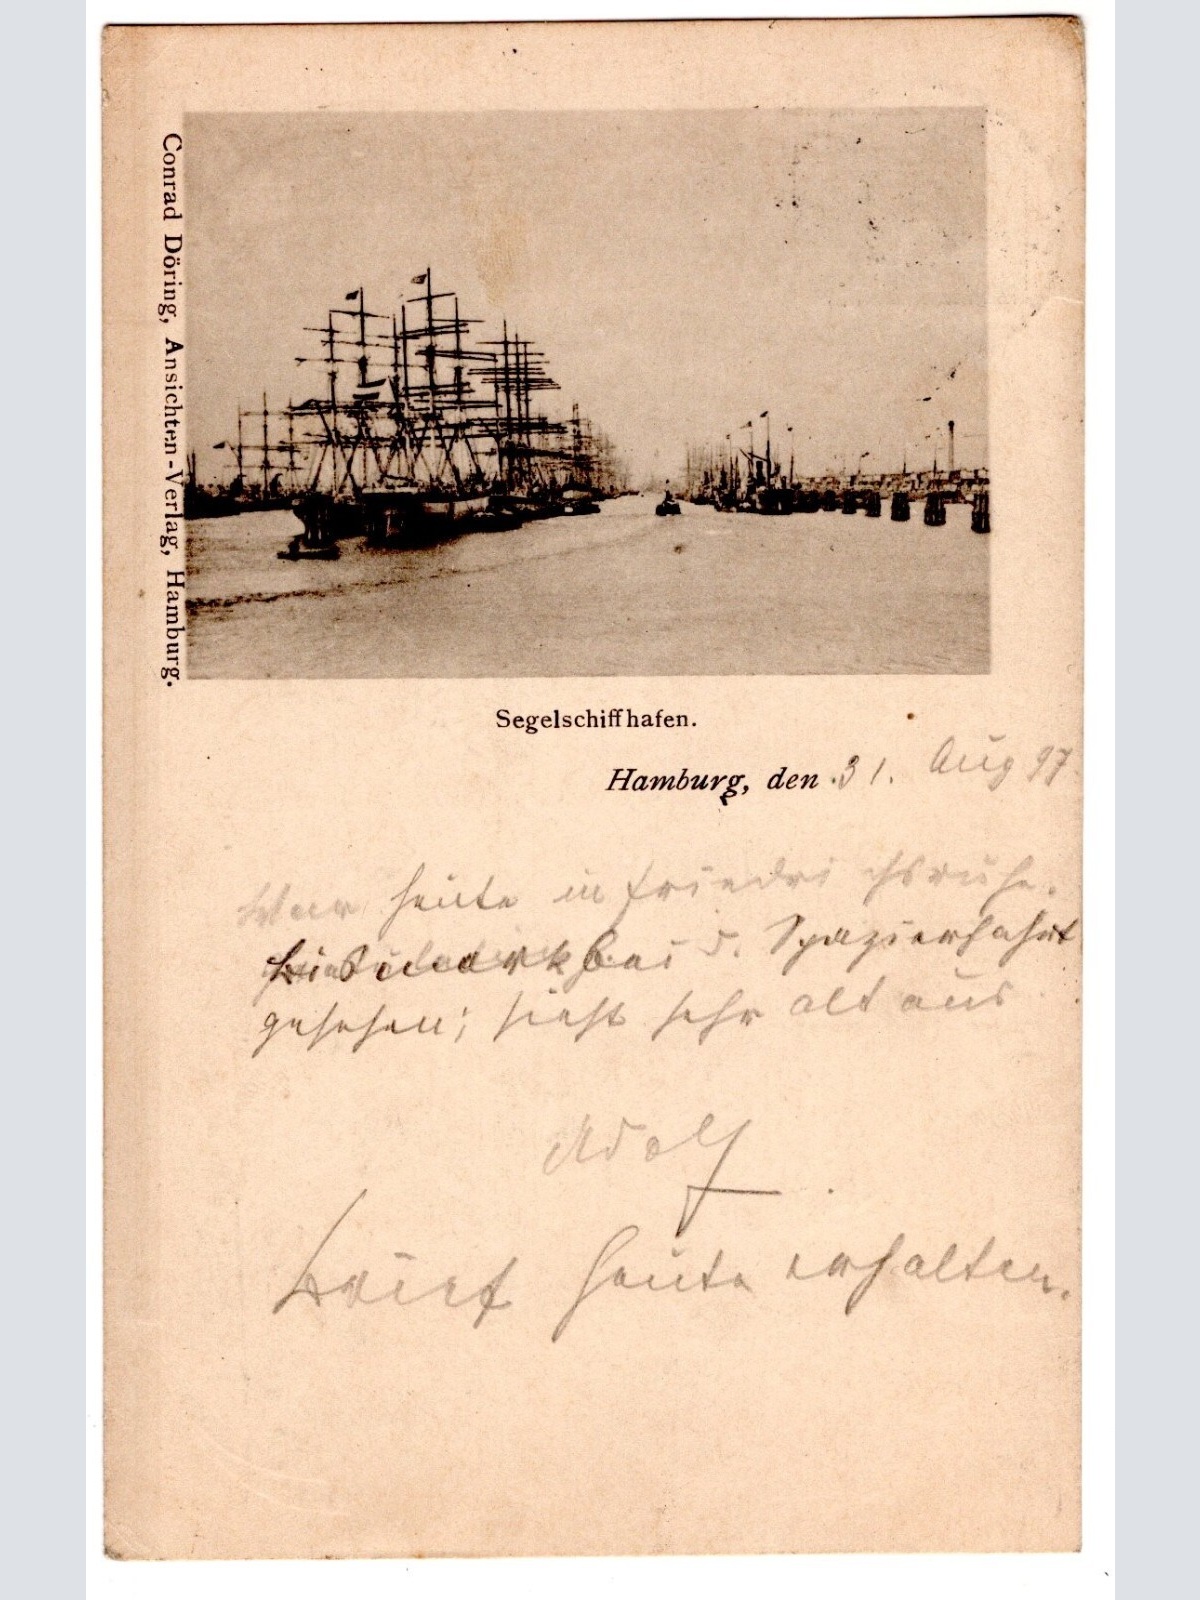 Conrad Döring, Ansichten-Verlag, Hamburg.
Segelschiffhafen.
Hamburg, den 31. Aug 97
War heute in Friedrichsruhe.
Bismarck bei d. Spazierfahrt
gesehen; sieht sehr alt aus
Adolf
Brief heute erhalten.